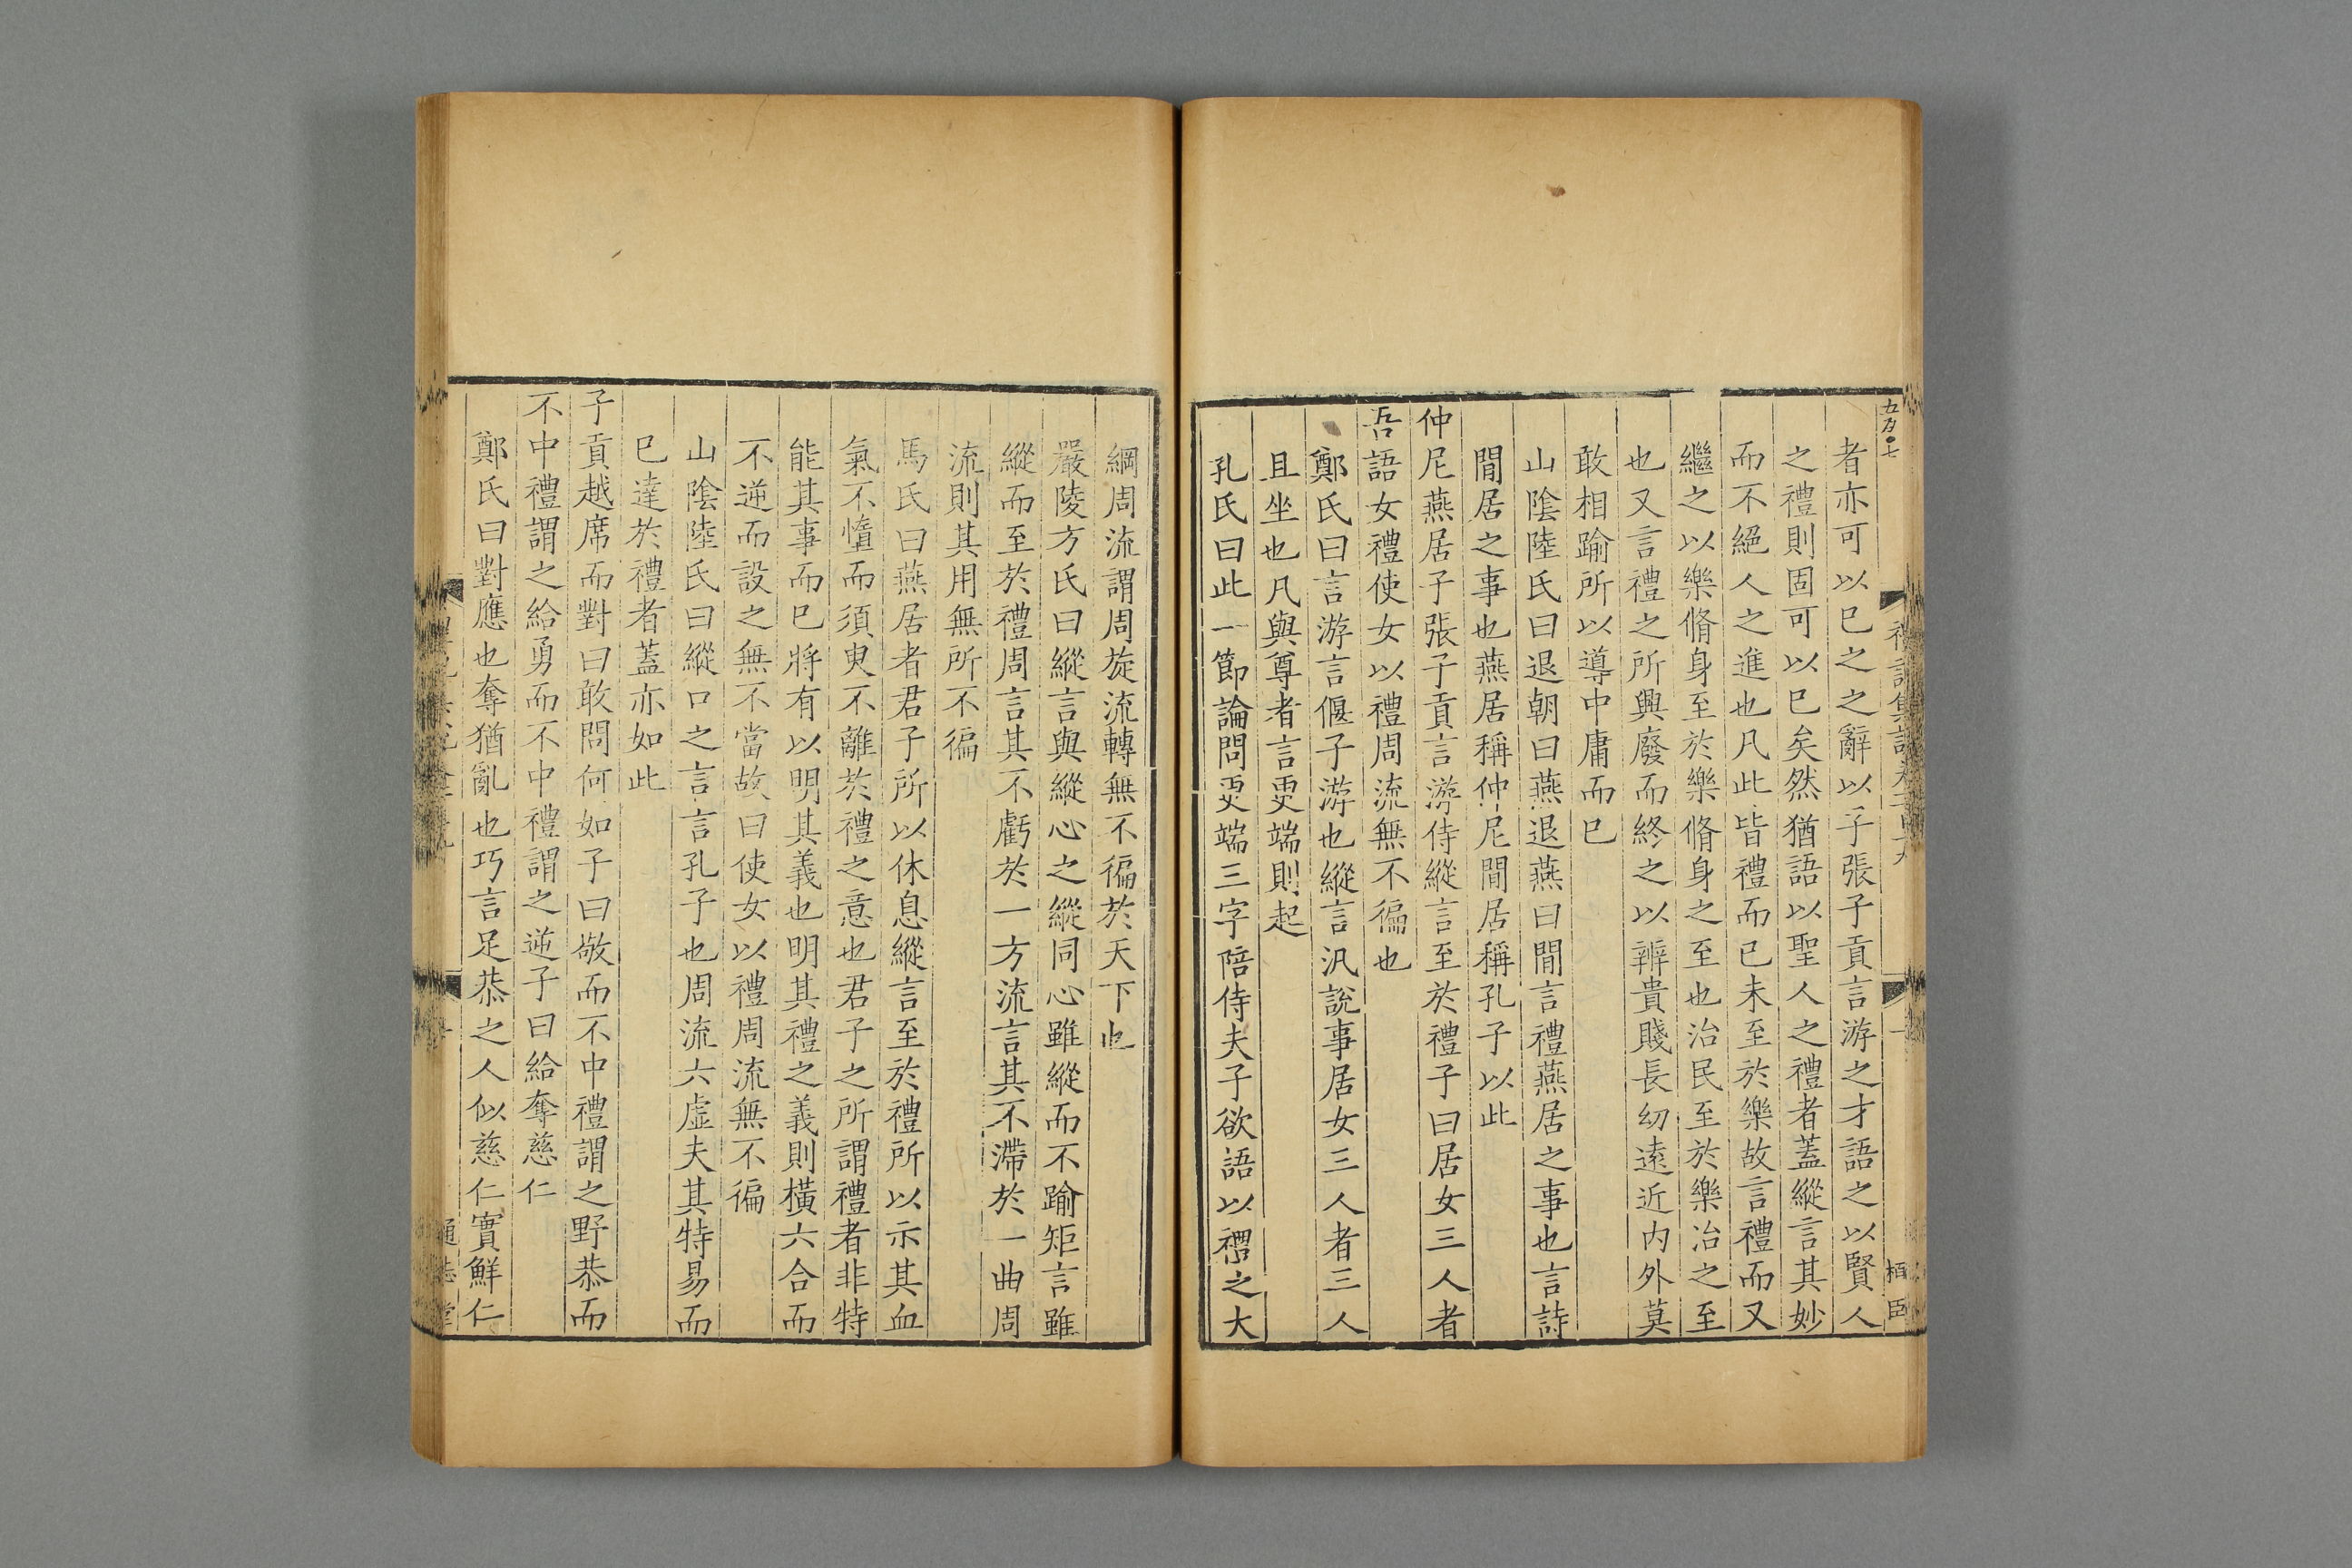 者亦可以已之之辭以子張子貢言游之才語之以賢人
之禮則固可以已矣然猶語以聖人之禮者蓋縱言其妙
而不絕人之進也凡此皆禮而已未至於樂故言禮而又
繼之以樂脩身至於樂脩身之至也治民至於樂治之至
也又言禮之所興廢而終之以辨貴賤長幼遠近内外莫
敢相踰所以導中庸而已
山陰陸氏曰退朝曰燕退燕曰閒言禮燕居之事也言詩
閒居之事也燕居稱仲尼閒居稱孔子以此
仲尼燕居子張子貢言游侍縱言至於禮子曰居女三人者
吾語女禮使女以禮周流無不徧也
鄭氏曰言游言偃子游也縱言汎說事居女三人者三人
且坐也凡與尊者言更端則起
孔氏曰此一節論問更端三字陪侍夫子欲語以禮之大
綱周流謂周旋流轉無不徧於天下也
嚴陵方氏曰縱言與縱心之縱同心雖縱而不踰矩言雖
縱而至於禮周言其不虧於一方流言其不滯於一曲周
流則其用無所不徧
馬氏曰燕居者君子所以休息縱言至於禮所以示其血
氣不惰而須臾不離於禮之意也君子之所謂禮者非特
能其事而已將有以明其義也明其禮之義則橫六合而
不逆而設之無不當故曰使女以禮周流無不徧
山陰陸氏曰縱口之言言孔子也周流六虛夫其特易而
已達於禮者蓋亦如此
子貢越席而對曰敢問何如子曰敬而不中禮謂之野恭而
不中禮謂之給勇而不中禮謂之逆子曰給奪慈仁
鄭氏曰對應也奪猶亂也巧言足恭之人似慈仁實鮮仁
通志堂